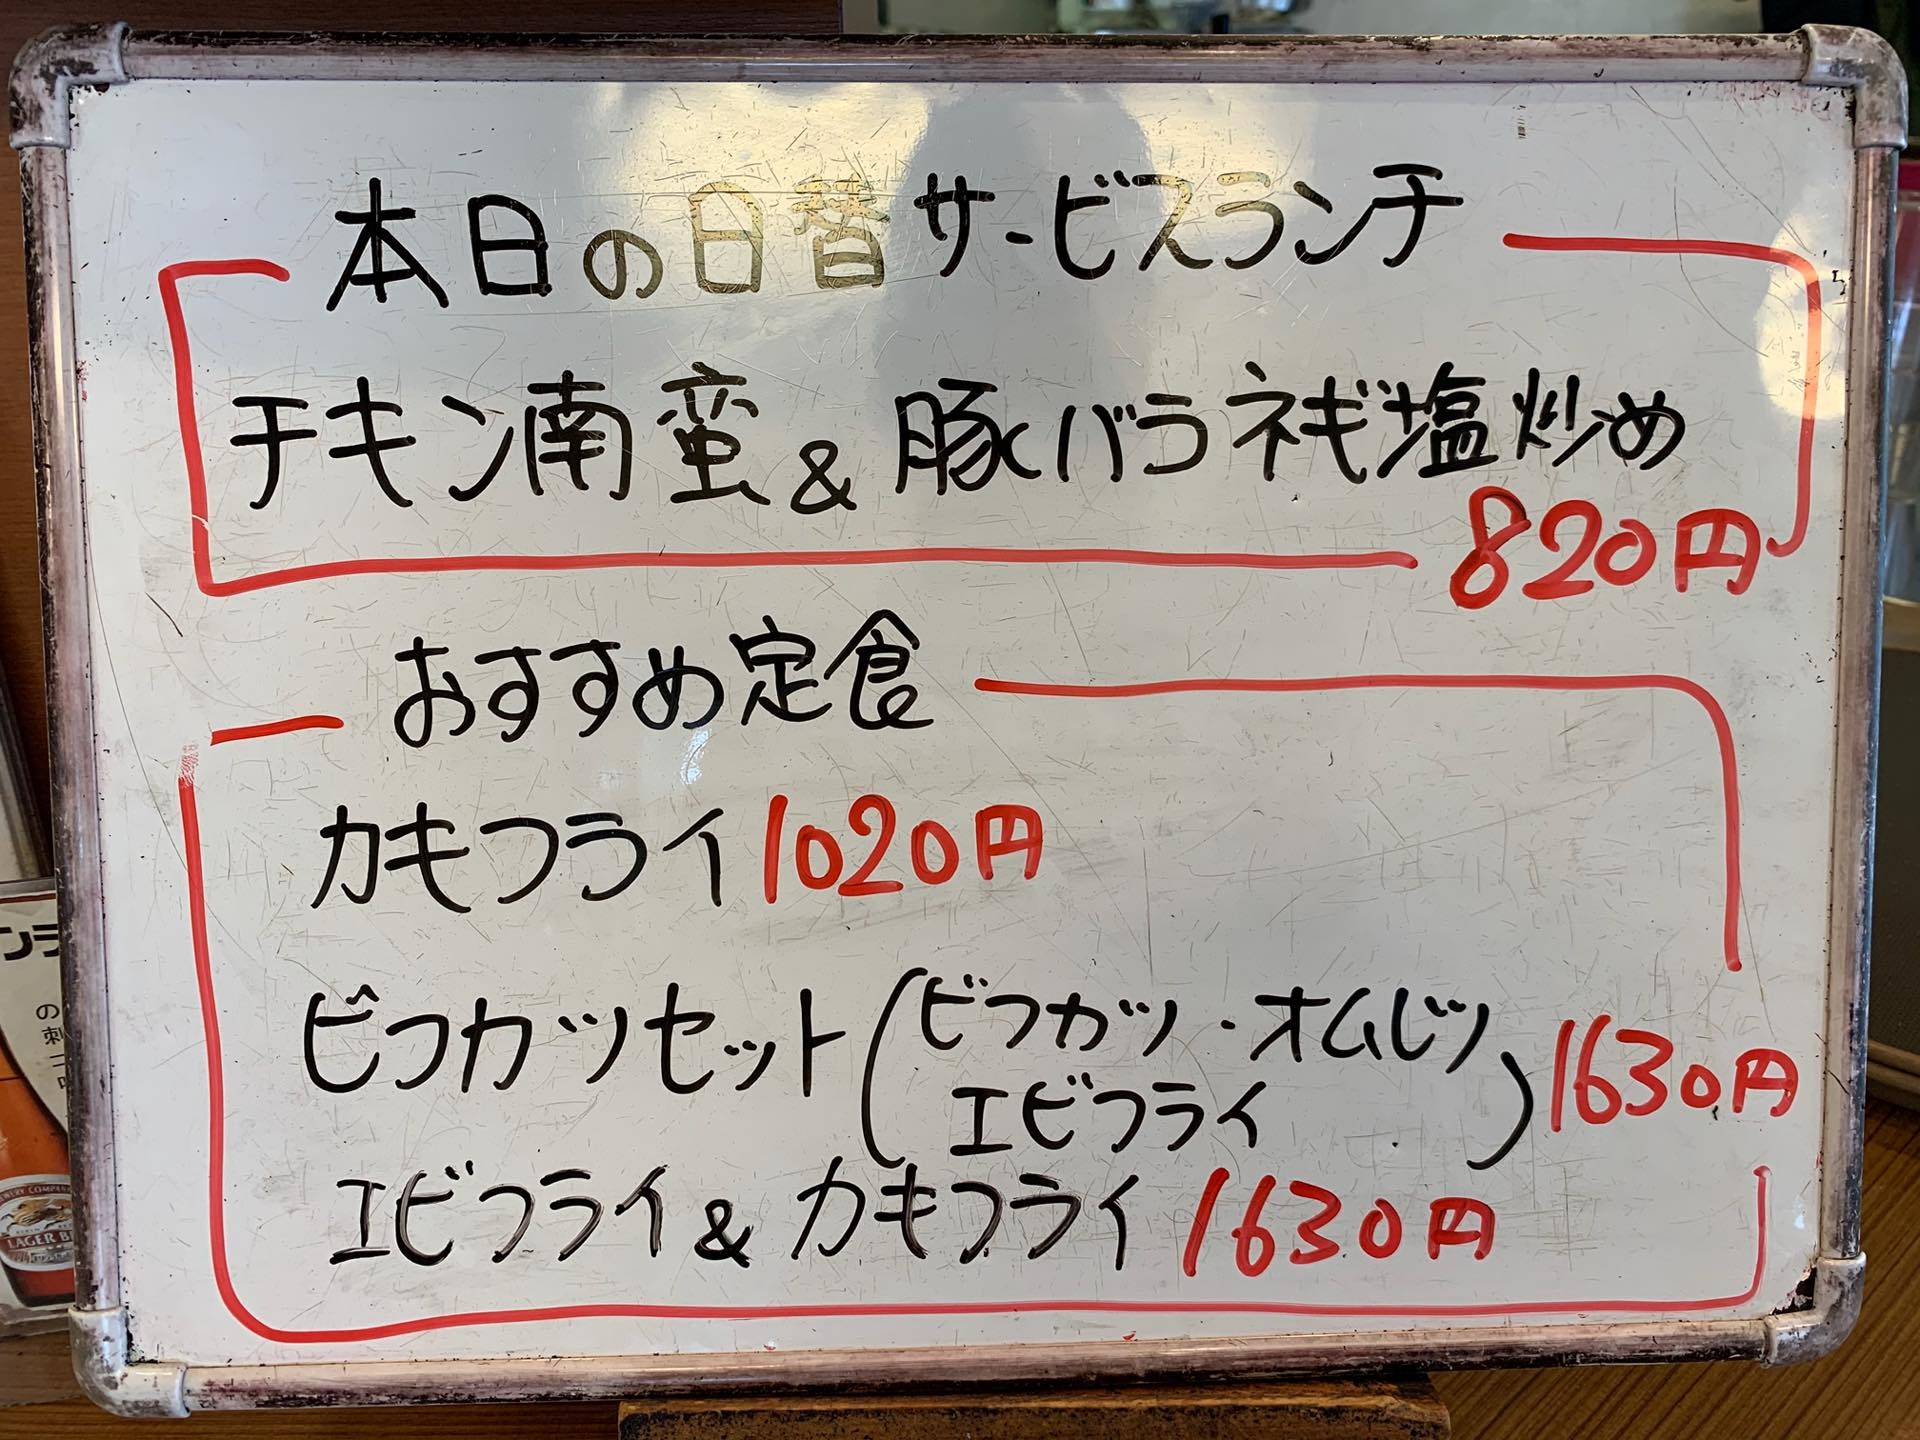 本日の日替サービスランチ
チキン南蛮&豚バラネギ塩炒め
820円
おすすめ定食
カキフライ1020円
ビフカツセット(ビフカツ・オムレツ
エビフライ)1630円
エビフライ&カキフライ1630円
ンラ
の
刺
LAGER